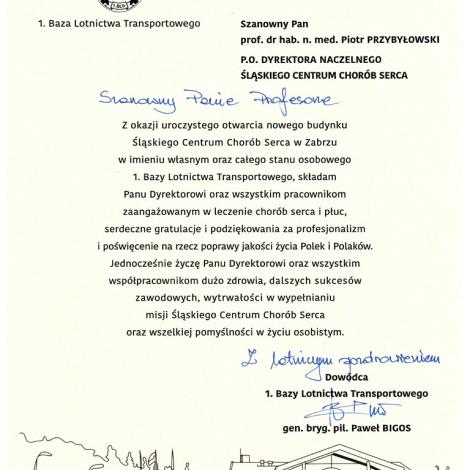 1. BLTr
1. Baza Lotnictwa Transportowego
Szanowny Pan
prof. dr hab. n. med. Piotr PRZYBYŁOWSKI
P.O. DYREKTORA NACZELNEGO
ŚLĄSKIEGO CENTRUM CHORÓB SERCA
Szanowny Panie Profesorze
Z okazji uroczystego otwarcia nowego budynku
Śląskiego Centrum Chorób Serca w Zabrzu
w imieniu własnym oraz całego stanu osobowego
1. Bazy Lotnictwa Transportowego, składam
Panu Dyrektorowi oraz wszystkim pracownikom
zaangażowanym w leczenie chorób serca i płuc,
serdeczne gratulacje i podziękowania za profesjonalizm
i poświęcenie na rzecz poprawy jakości życia Polek i Polaków.
Jednocześnie życzę Panu Dyrektorowi oraz wszystkim
współpracownikom dużo zdrowia, dalszych sukcesów
zawodowych, wytrwałości w wypełnianiu
misji Śląskiego Centrum Chorób Serca
oraz wszelkiej pomyślności w życiu osobistym.
Z lotniczym pozdrowieniem
Dowódca
1. Bazy Lotnictwa Transportowego
gen. bryg. pil. Paweł BIGOS